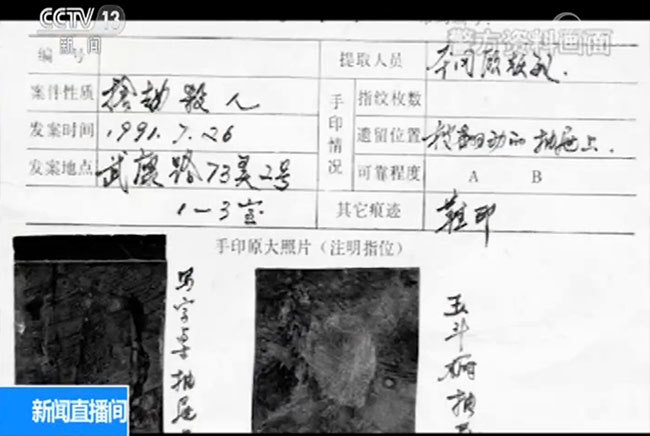 CCTV 13
新闻
警方资料画面
编 号
提取人员
案件性质 抢劫杀人
手印情况
指纹枚数
发案时间 1991.7.26
遗留位置 被翻动的抽屉上.
发案地点 武康路73弄2号
可靠程度 A B
1-3室
其它痕迹 鞋印
手印原大照片（注明指位）
写字桌抽屉
五斗橱抽
新闻直播间